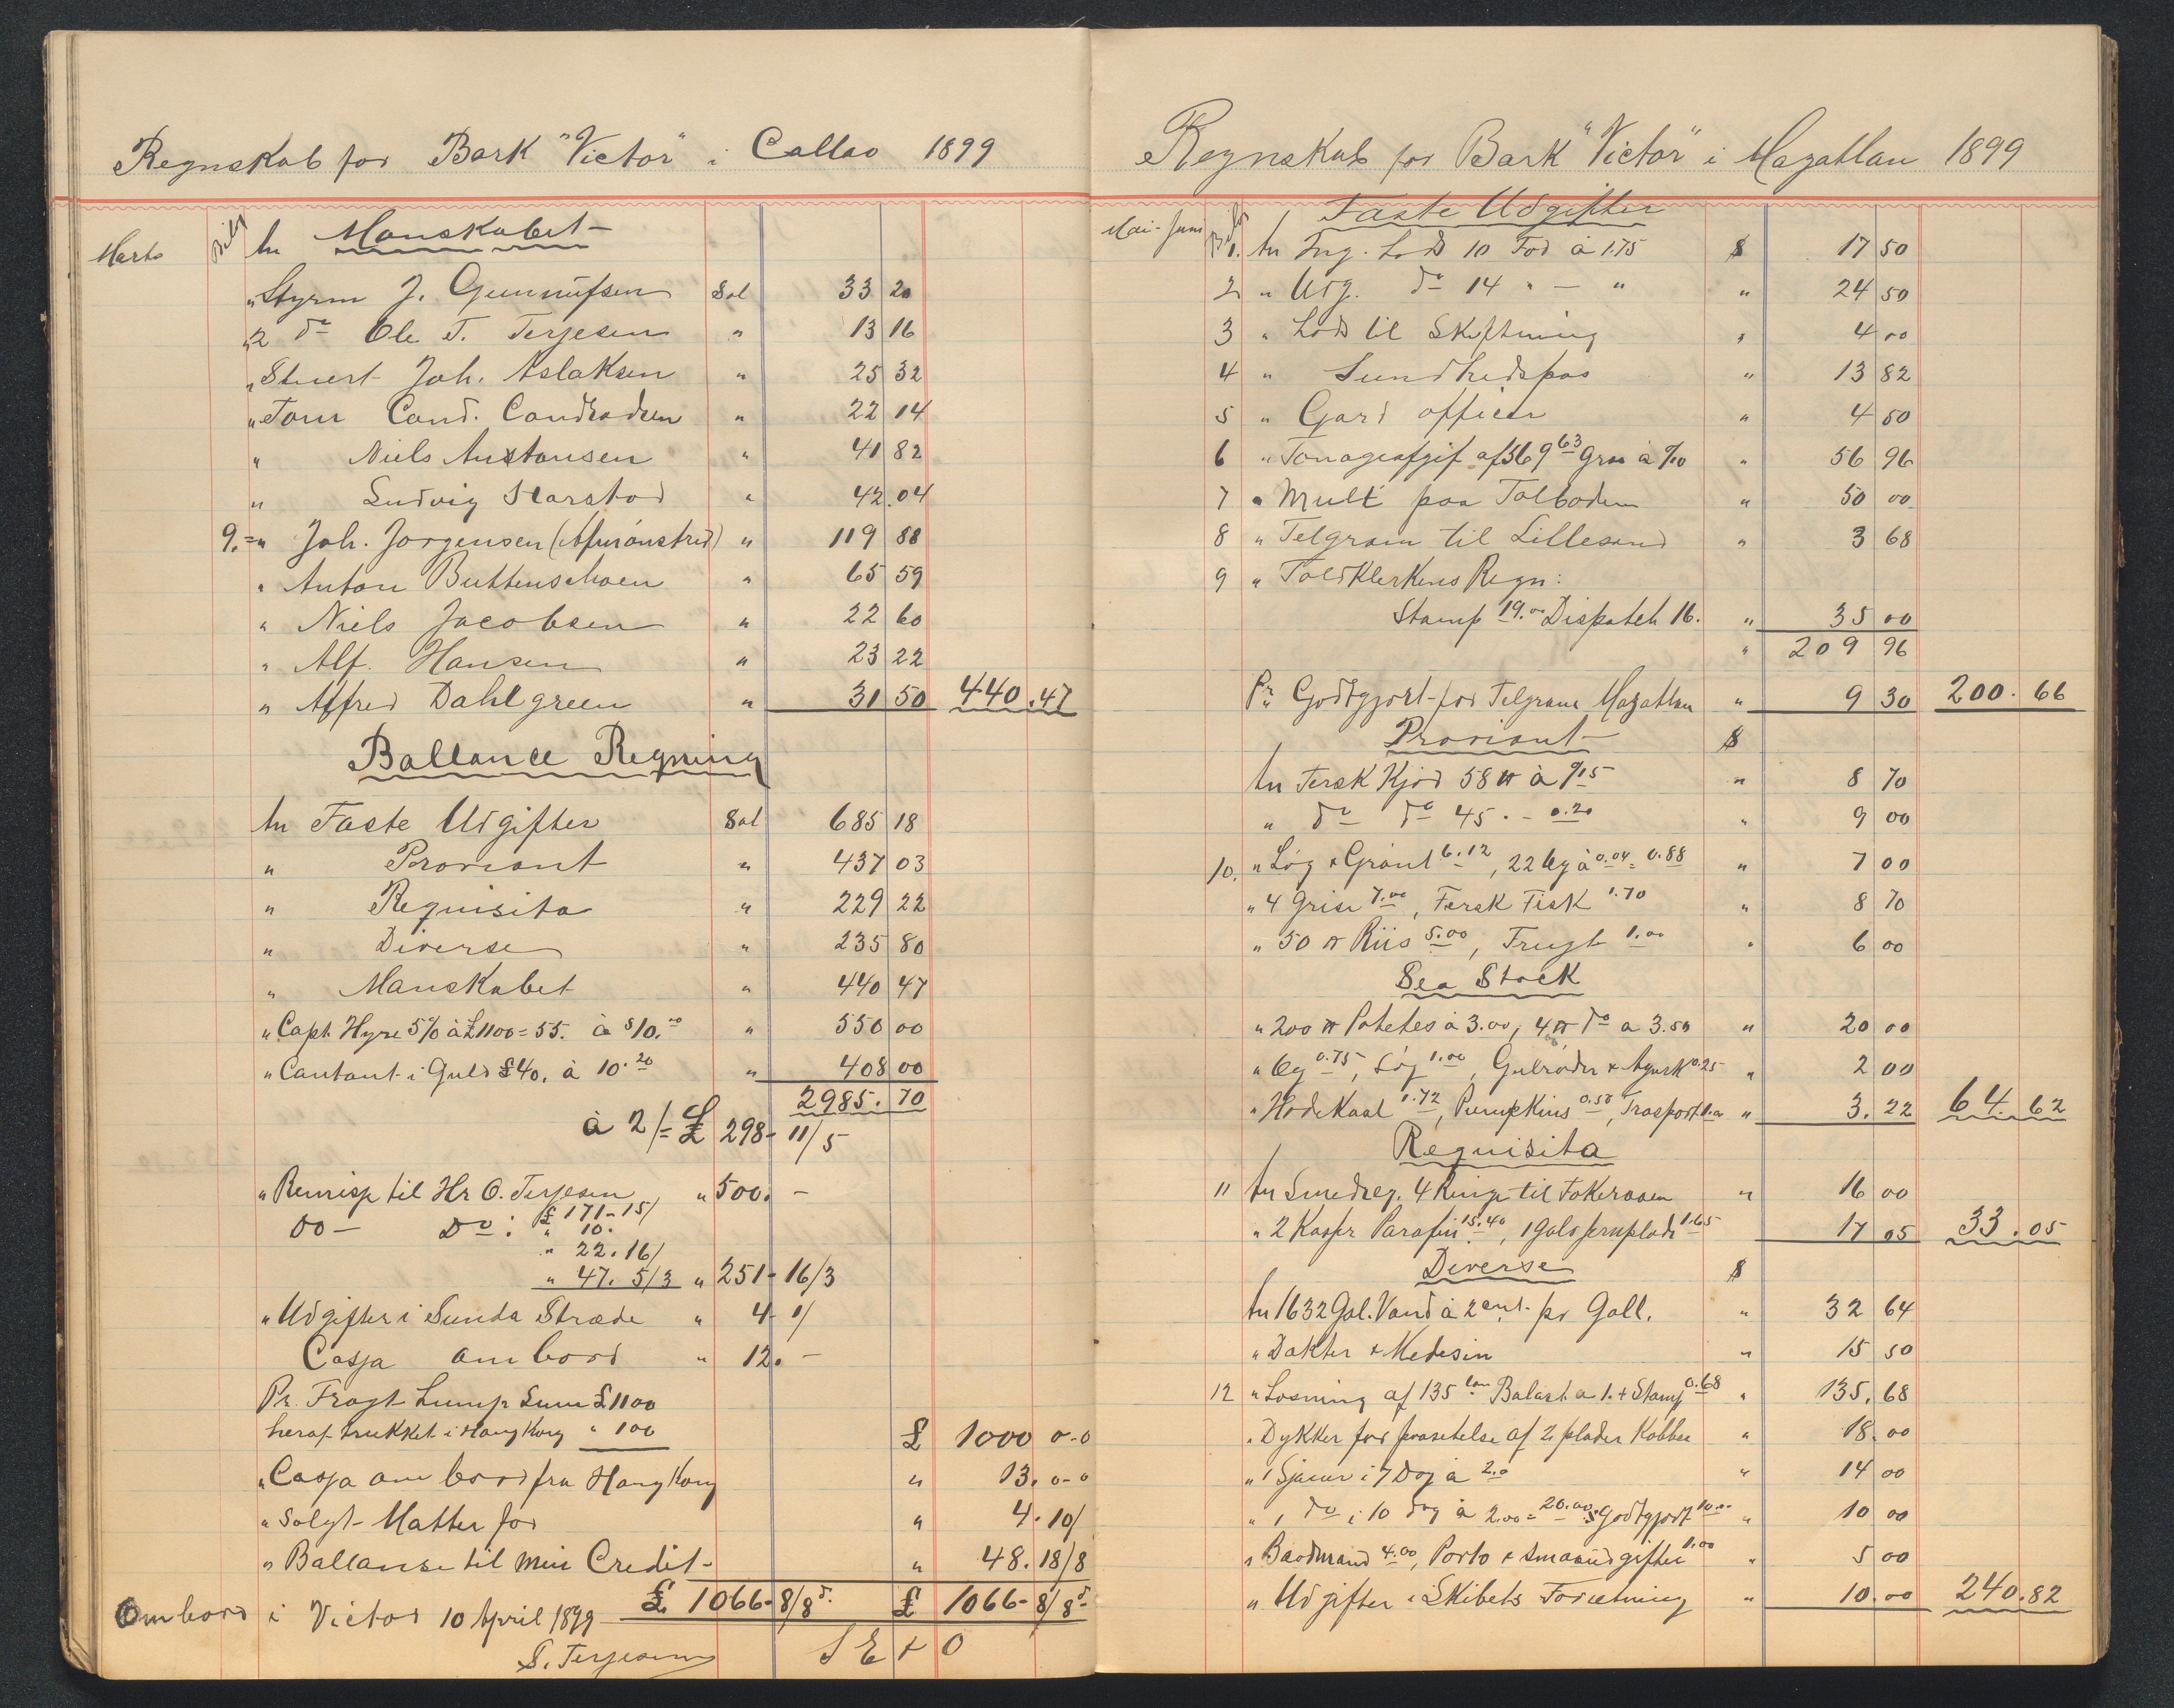 Regnskab for Bark "Victor" i Callao 1899
Marts Bilag An Manskabet
" Styrm J. Gunnufsen Sol 33 20
" 2 do Ole T. Terjesen " 13 16
" Stuert Joh. Aslaksen " 25 32
" Tom Cond. Condradsen " 22 14
" Niels Austansen " 41 82
" Ludvig Harstad " 42.04
9. = " Joh. Jørgensen (Afmønstred) " 119 88
" Anton Buttenschoen " 65 59
" Niels Jacobsen " 22 60
" Alf. Hansen " 23 22
" Alfred Dahlgreen " 31 50 440.47
Ballance Regning
An Faste Udgifter Sol 685 18
" Proviant " 437 03
" Requisita " 229 22
" Diverse " 235 80
" Manskabet " 440 47
" Capt. Hyre 5% à £1100 = 55. à $10.00 " 550 00
" Contant i Guld £40. à 10.20 " 408 00
2985.70
à 2/= £ 298- 11/5
" Remisse til Hr O. Terjesen " 500. -
do - Do: £ 171-15/
" 10.
" 22.16/
" 47. 5/3 " 251- 16/3
" Udgifter i Sunda Stræde " 4- 1/
Cassa om bord " 12. -
Pr. Fragt Lump Sum £1100
heraf trukket i Hong Kong " 100 £ 1000 0-0
" Cassa om bord fra Hong Kong " 13. 0-0
" Solgt Matter for " 4. 10/
" Ballanse til min Credit " 48. 18/8
£ 1066- 8/8 d. £ 1066- 8/8 d.
Ombord i Victor 10 April 1899
S. Terjesen S E & O
Regnskab for Bark "Victor" i Mazatlan 1899
Faste Udgifter
Mai-Juni Bilag 1. An Ing. Lods 10 Fod à 1.75 $ 17 50
2 " Udg. do 14 " - " " 24 50
3 " Lods til Skiftning " 4 00
4 " Sundhedspas " 13 82
5 " Gard officer " 4 50
6 " Tonageafgif af 369 63 Gros à %10 " 56 96
7 " Mult paa Tolboden " 50 00
8 " Telgram til Lillesand " 3 68
9 " Toldklerkens Regn:
Stamp 19.00 Dispatch 16. " 35 00
" 209 96
Pr Godtgjort for Telgram Mazatlan " 9 30 200.66
Proviant $
An Fersk Kjød 58 ℔ à %15 " 8 70
" do do 45 . - 0.20 " 9 00
10. " Løg & Grønt 6.12, 22 Eg à 0.04 = 0.88 " 7 00
" 4 Grise 7.00, Fersk Fisk 1.70 " 8 70
" 50 ℔ Riis 5.00, Frugt 1.00 " 6 00
Sea Stock
" 200 ℔ Potetes à 3.00, 4 ℔ do a 3.50 " 20 00
" Eg 0.75, Løg 1.00, Gulrøder & Agurk 0.25 " 2 00
" Hodekaal 1.72, Pumpkins 0.50, Trasport 1.00 " 3.22 64.62
Requisita
11 An Smedreg. 4 Ringe til Fokeraaen " 16 00
" 2 Kasser Parafin 15.40, 1 Galv jernplade 1.65 17 05 33.05
Diverse $
An 1632 Gal. Vand à 2 cent. pr Gall. " 32 64
" Dokter & Medesin " 15 50
12 " Losning af 135 ton Balast a 1. + Stamp 0.68 " 135.68
" Dykker for paasetelse af 2 plader Kobber " 18.00
" 1 Sjauer i 7 Dag à 2.0 " 14 00
" 1 do i 10 dag à 2.00 = 20.00 Godtgjort 10.00 " 10 00
" Baadmand 4.00, Porto & smaaudgifter 1.00 " 5 00
" Udgifter i Skibets Forretning " 10.00 240.82